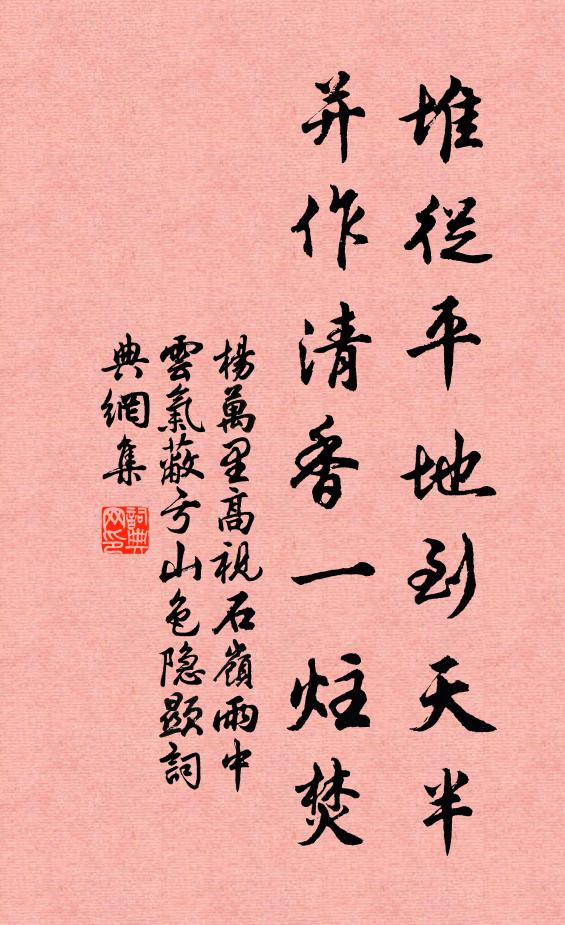 堆從平地到天半
并作清香一炷焚
楊萬里高視石嶺雨中
雲氣蔽亏山色隐顯詞
典網集
詞典網印